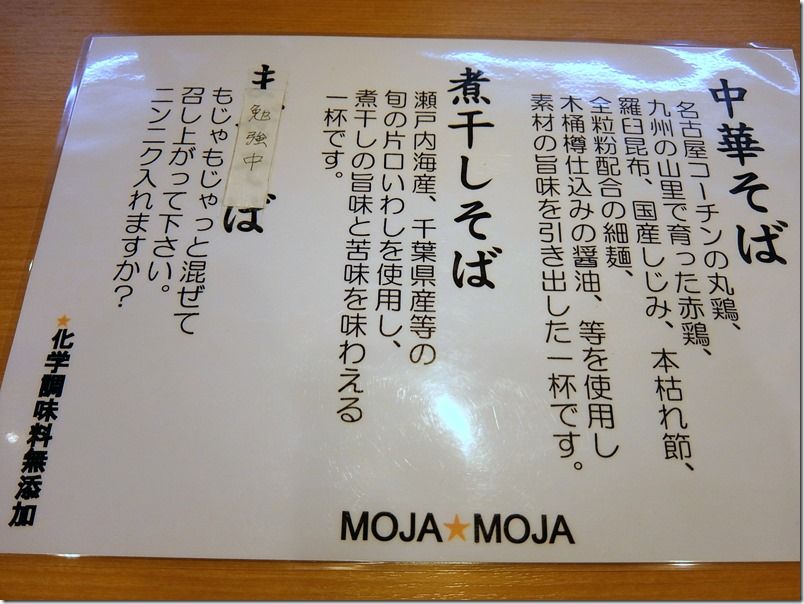 中華そば
名古屋コーチンの丸鶏、
九州の山里で育った赤鶏、
羅臼昆布、国産しじみ、本枯れ節、
全粒粉配合の細麺、
木桶樽仕込みの醤油、等を使用し
素材の旨味を引き出した一杯です。
煮干しそば
瀬戸内海産、千葉県産等の
旬の片口いわしを使用し、
煮干しの旨味と苦味を味わえる
一杯です。
ば
勉強中
もじゃもじゃっと混ぜて
召し上がって下さい。
ニンニク入れますか?
★化学調味料無添加
MOJA★MOJA